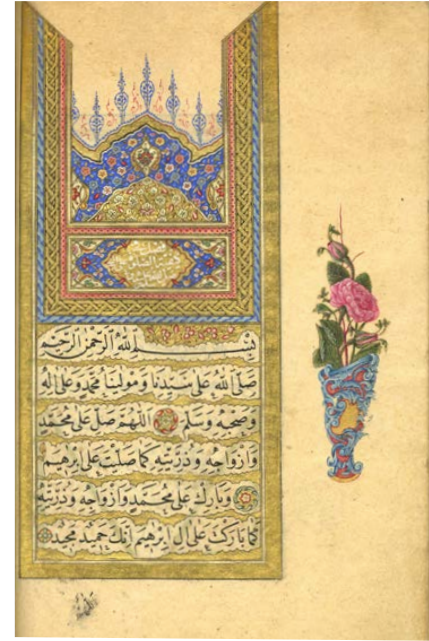 بِسْمِ اللهِ الرَّحْمٰنِ الرَّحِيْمِ
صَلَّى اللهُ عَلٰى سَيِّدِنَا وَمَوْلٰينَا مُحَمَّدٍ وَعَلٰى اٰلِهِ
وَصَحْبِهِ وَسَلَّمَ اَللّٰهُمَّ صَلِّ عَلٰى مُحَمَّدٍ
وَاَزْوَاجِهِ وَذُرِّيَّتِهِ كَمَا صَلَّيْتَ عَلٰى اِبْرٰهِيمَ
وَبَارِكْ عَلٰى مُحَمَّدٍ وَاَزْوَاجِهِ وَذُرِّيَّتِهِ
كَمَا بَارَكْتَ عَلٰى اٰلِ اِبْرٰهِيمَ اِنَّكَ حَمِيدٌ مَجِيدٌ